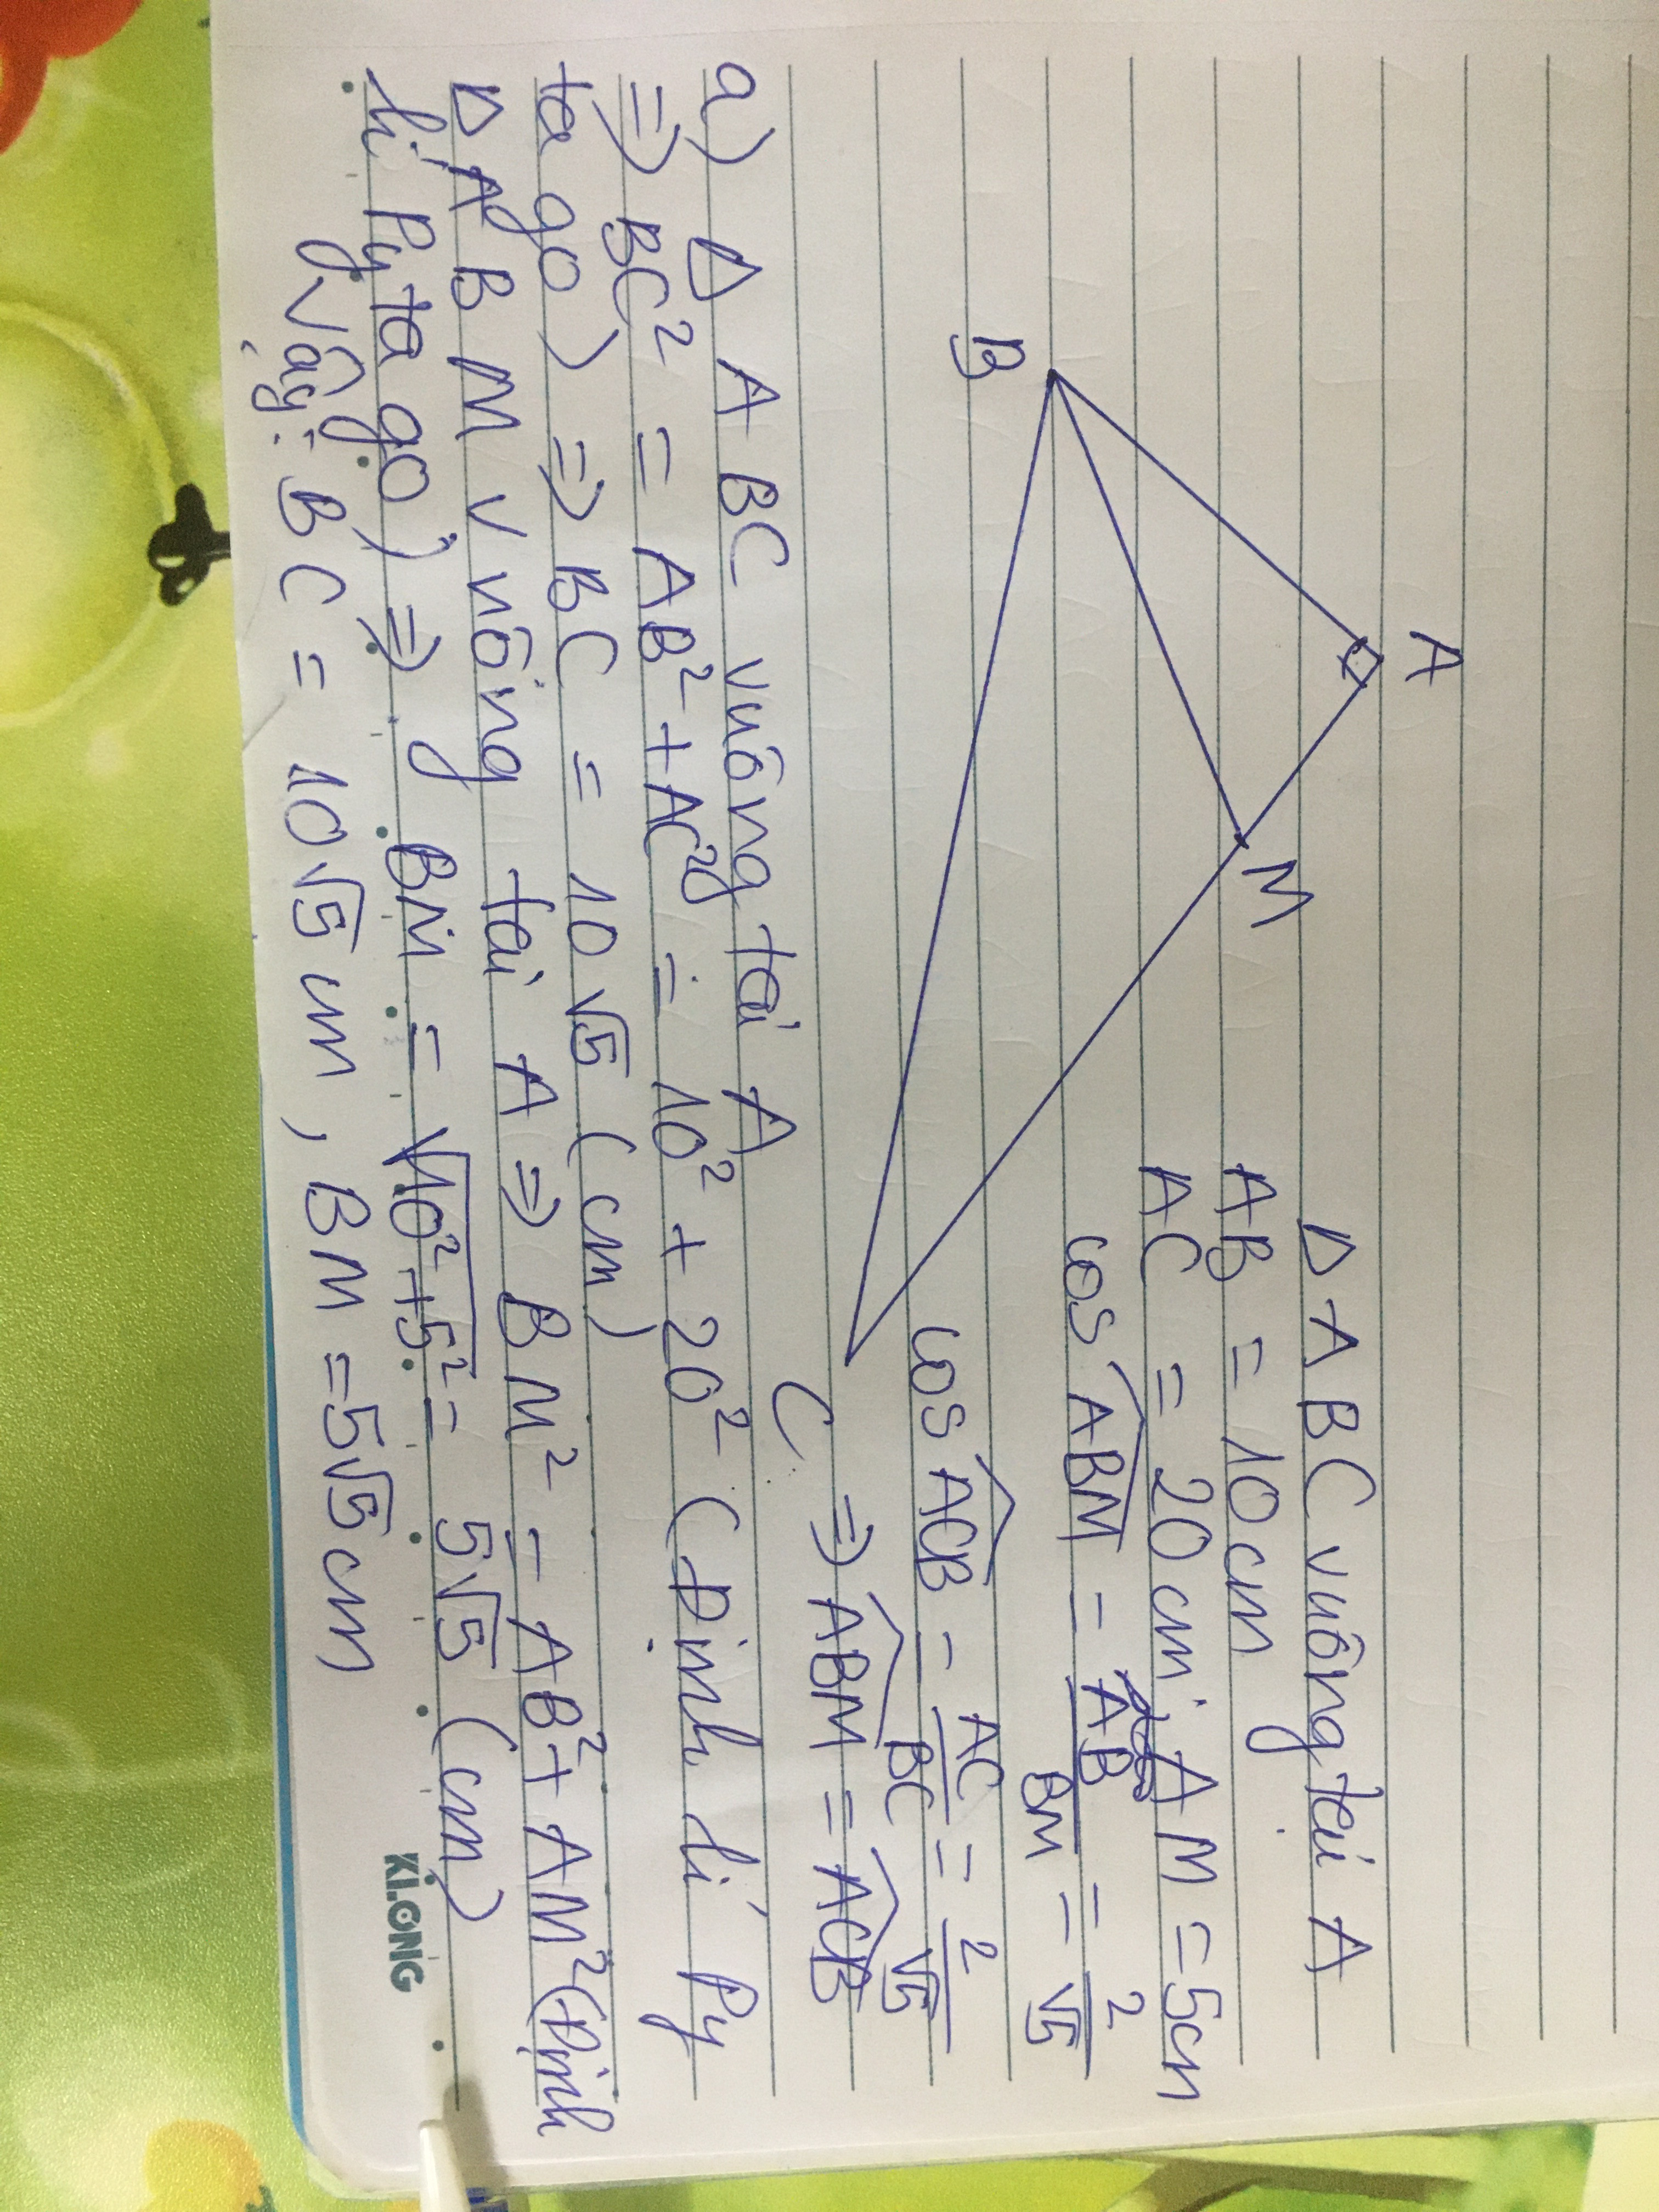 A
Δ ABC vuông tại A
AB = 10cm
M
AC = 20cm, AM = 5cm
cos ABM = AB/BM = 2/√5
B
cos ACB = AC/BC = 2/√5
C
⇒ ABM = ACB
a) Δ ABC vuông tại A
⇒ BC² = AB² + AC² = 10² + 20² (Định lí Py
ta go) ⇒ BC = 10√5 (cm)
Δ ABM vuông tại A ⇒ BM² = AB² + AM² (Định
lí Py ta go) ⇒ BM = √10² + 5² = 5√5 (cm)
Vậy: BC = 10√5 cm, BM = 5√5 cm
KLONG